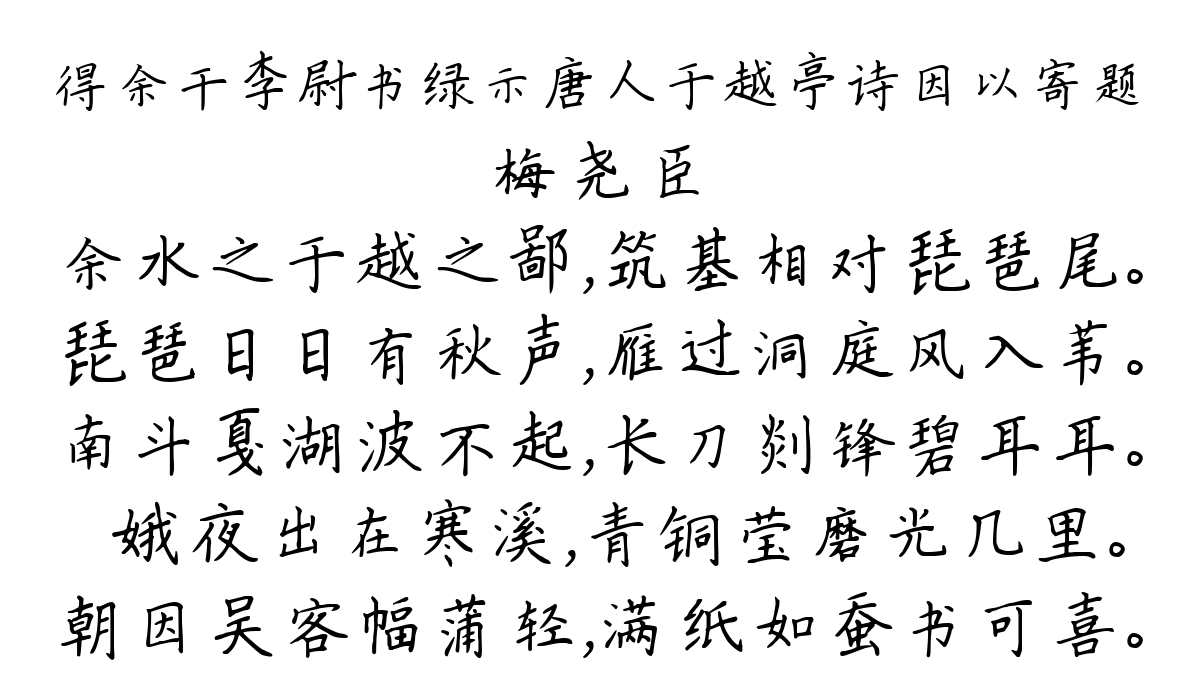 得余干李尉书绿示唐人于越亭诗因以寄题
梅尧臣
余水之于越之鄙,筑基相对琵琶尾。
琵琶日日有秋声,雁过洞庭风入苇。
南斗戛湖波不起,长刀剡锋碧耳耳。
娥夜出在寒溪,青铜莹磨光几里。
朝因吴客幅蒲轻,满纸如虿书可喜。